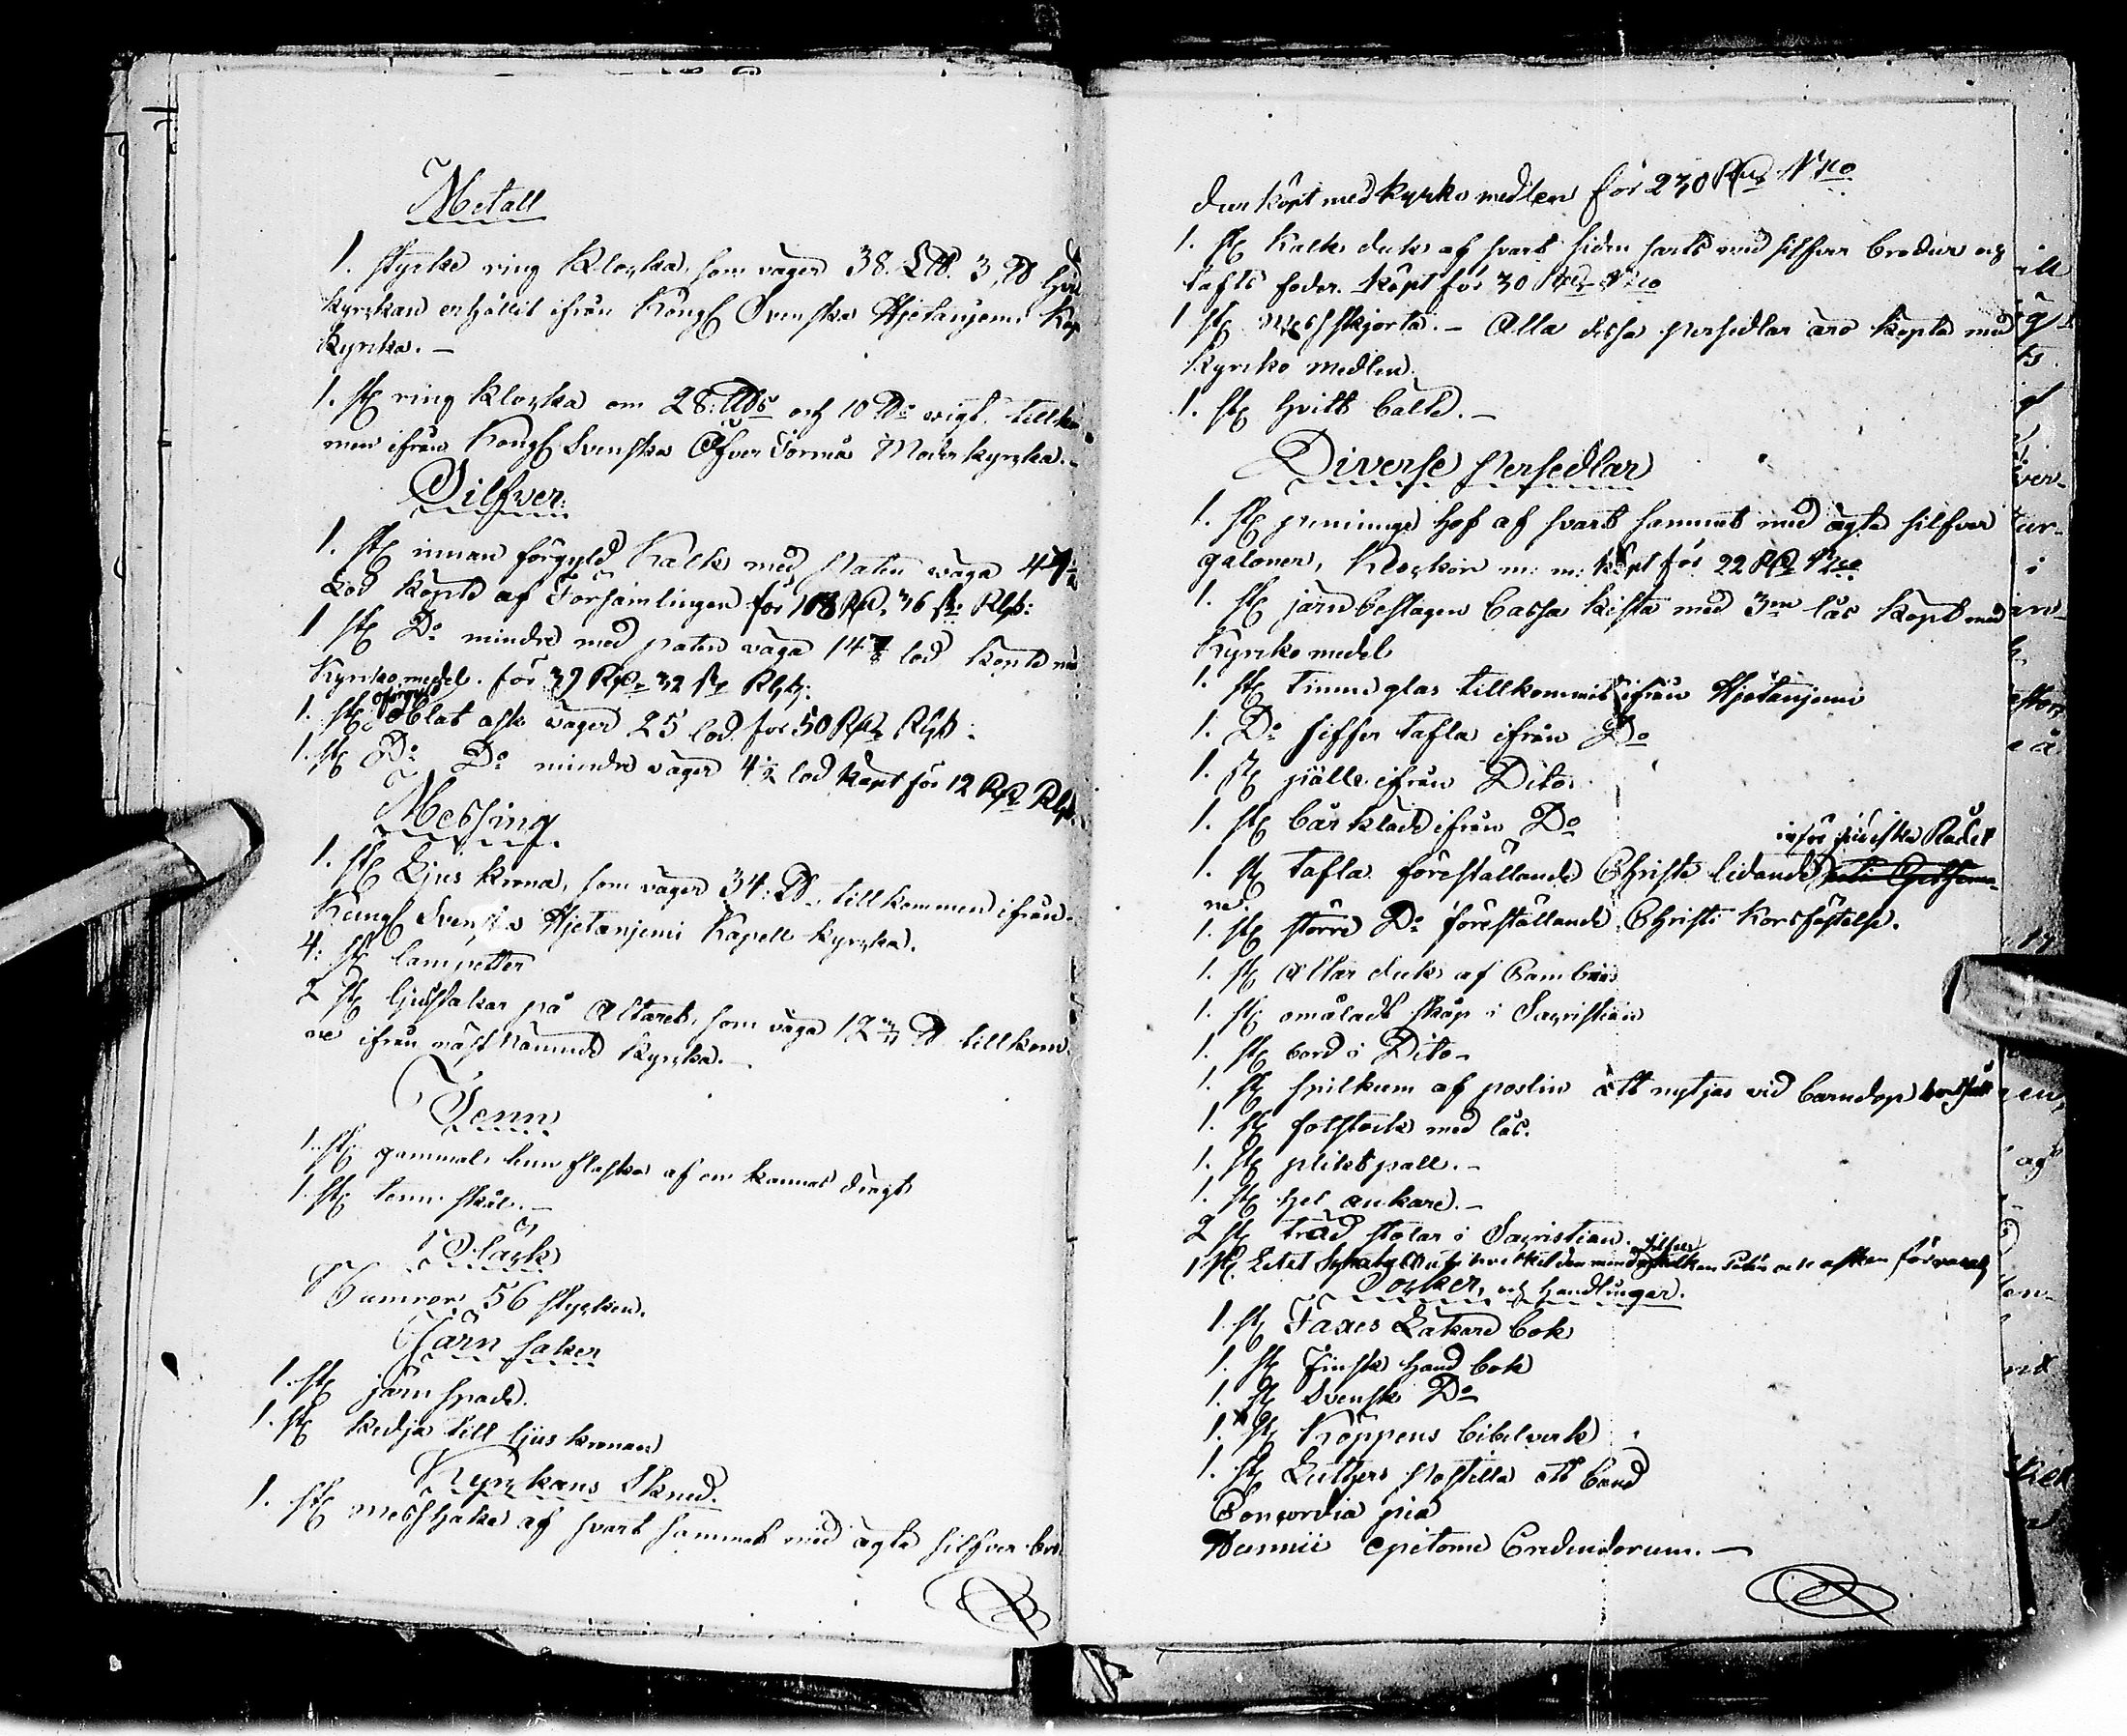 Metall
1. stycke ring Klocka, som väger 38. L℔. 3, ℔ hvil
kyrckan erhållit ifrån Kongl Svenska Hjetanjemi Kap
kyrcka. —
1. st ring Klocka om 28: L℔s och 10 ℔s vigt. tillkom
men ifrån Kongl Svenska Öfver Torneå Moderkyrcka. —
Silfver.
1. st innan förgyld Kalk med Paten väga 47½
Lod köpte af Församlingen för 108 Rd, 36 s: Rgs:
1 st Do mindre med paten väga 14⅞ lod köpte me
Kyrko medel. för 39 Rd 32 s Rgs:
1. st oförgyld Oblat ask väger 25 lod. för 50 Rd Rgs:
1. st Do Do mindre väger 4½ lod köpt för 12 Rd Rgs.
Messing
1. st Ljus krona, som väger 34: ℔. tillkommen ifrån
Kungl Svenska Hjetanjemi Kapell kyrcka.
4: st lampetter
2 st ljusstakar på Altaret, som väga 12 ¾ ℔ tillkom-
ne ifrån näst nämnde Kyrcka. —
Tenn
1. st gammal tenn flaska af en kannas drygt
1. st tenn skål. —
Bläck
Numror 56 stycken.
Järn saker
1. st järn spade.
1. st kedja till ljus kronan
Kyrckans Skrud.
1. st messhake af svart sammet med ägta silfver bro-
dur köpt med kyrko medlen för 230 Rd
1. st Kalk duk af svart siden sarts med silfver brodur och
tafts foder. köpt för 30 Rd
1 st messskjorta. — Alla dessa persedlar äro köpte med
kyrcko medlen.
1. st hvitt bälte. —
Diverse persedlar
1. st pennings hof af svart sammet med ägta silfver
galoner, Klockor m: m: köpt för 22 Rd
1. st järnbeslagen Cassa kista med 3ne lås köpt med
Kyrcko medel
1. st Timmeglas tillkommit ifrån Hjetanjemi
1. Do siffer tafla ifrån Do
1. st pälle ifrån Dito.
1. st bår kläde ifrån Do
inför judiska Rådet
1. st tafla föreställande Christi lidande uti Gethsema-
ne.
1. st större Do föreställande Christi Korsfästelse.
1. st Altar duk af Cambric
1. st omåladt skåp i Sacristian
1. st bord i Dito —
1. st spilkum af poslin att nytjas vid barndop
1. st fotstock med lås.
1. st plikt pall. —
1. st hel ankare. —
2 st träd stolar i Sacristian.
1 st. Litet hvilket den mindre silfver kalken Paten och asken förvaras
Böcker, och Handlingar.
1. st Faxes Läkare bok
1. st Finsk Hand bok
1. st Svensk Do
1. st Köppens bibelverk
1. st Luthers Postilla ett band
Concordia pia
Nunnii epitome Credendorum. —